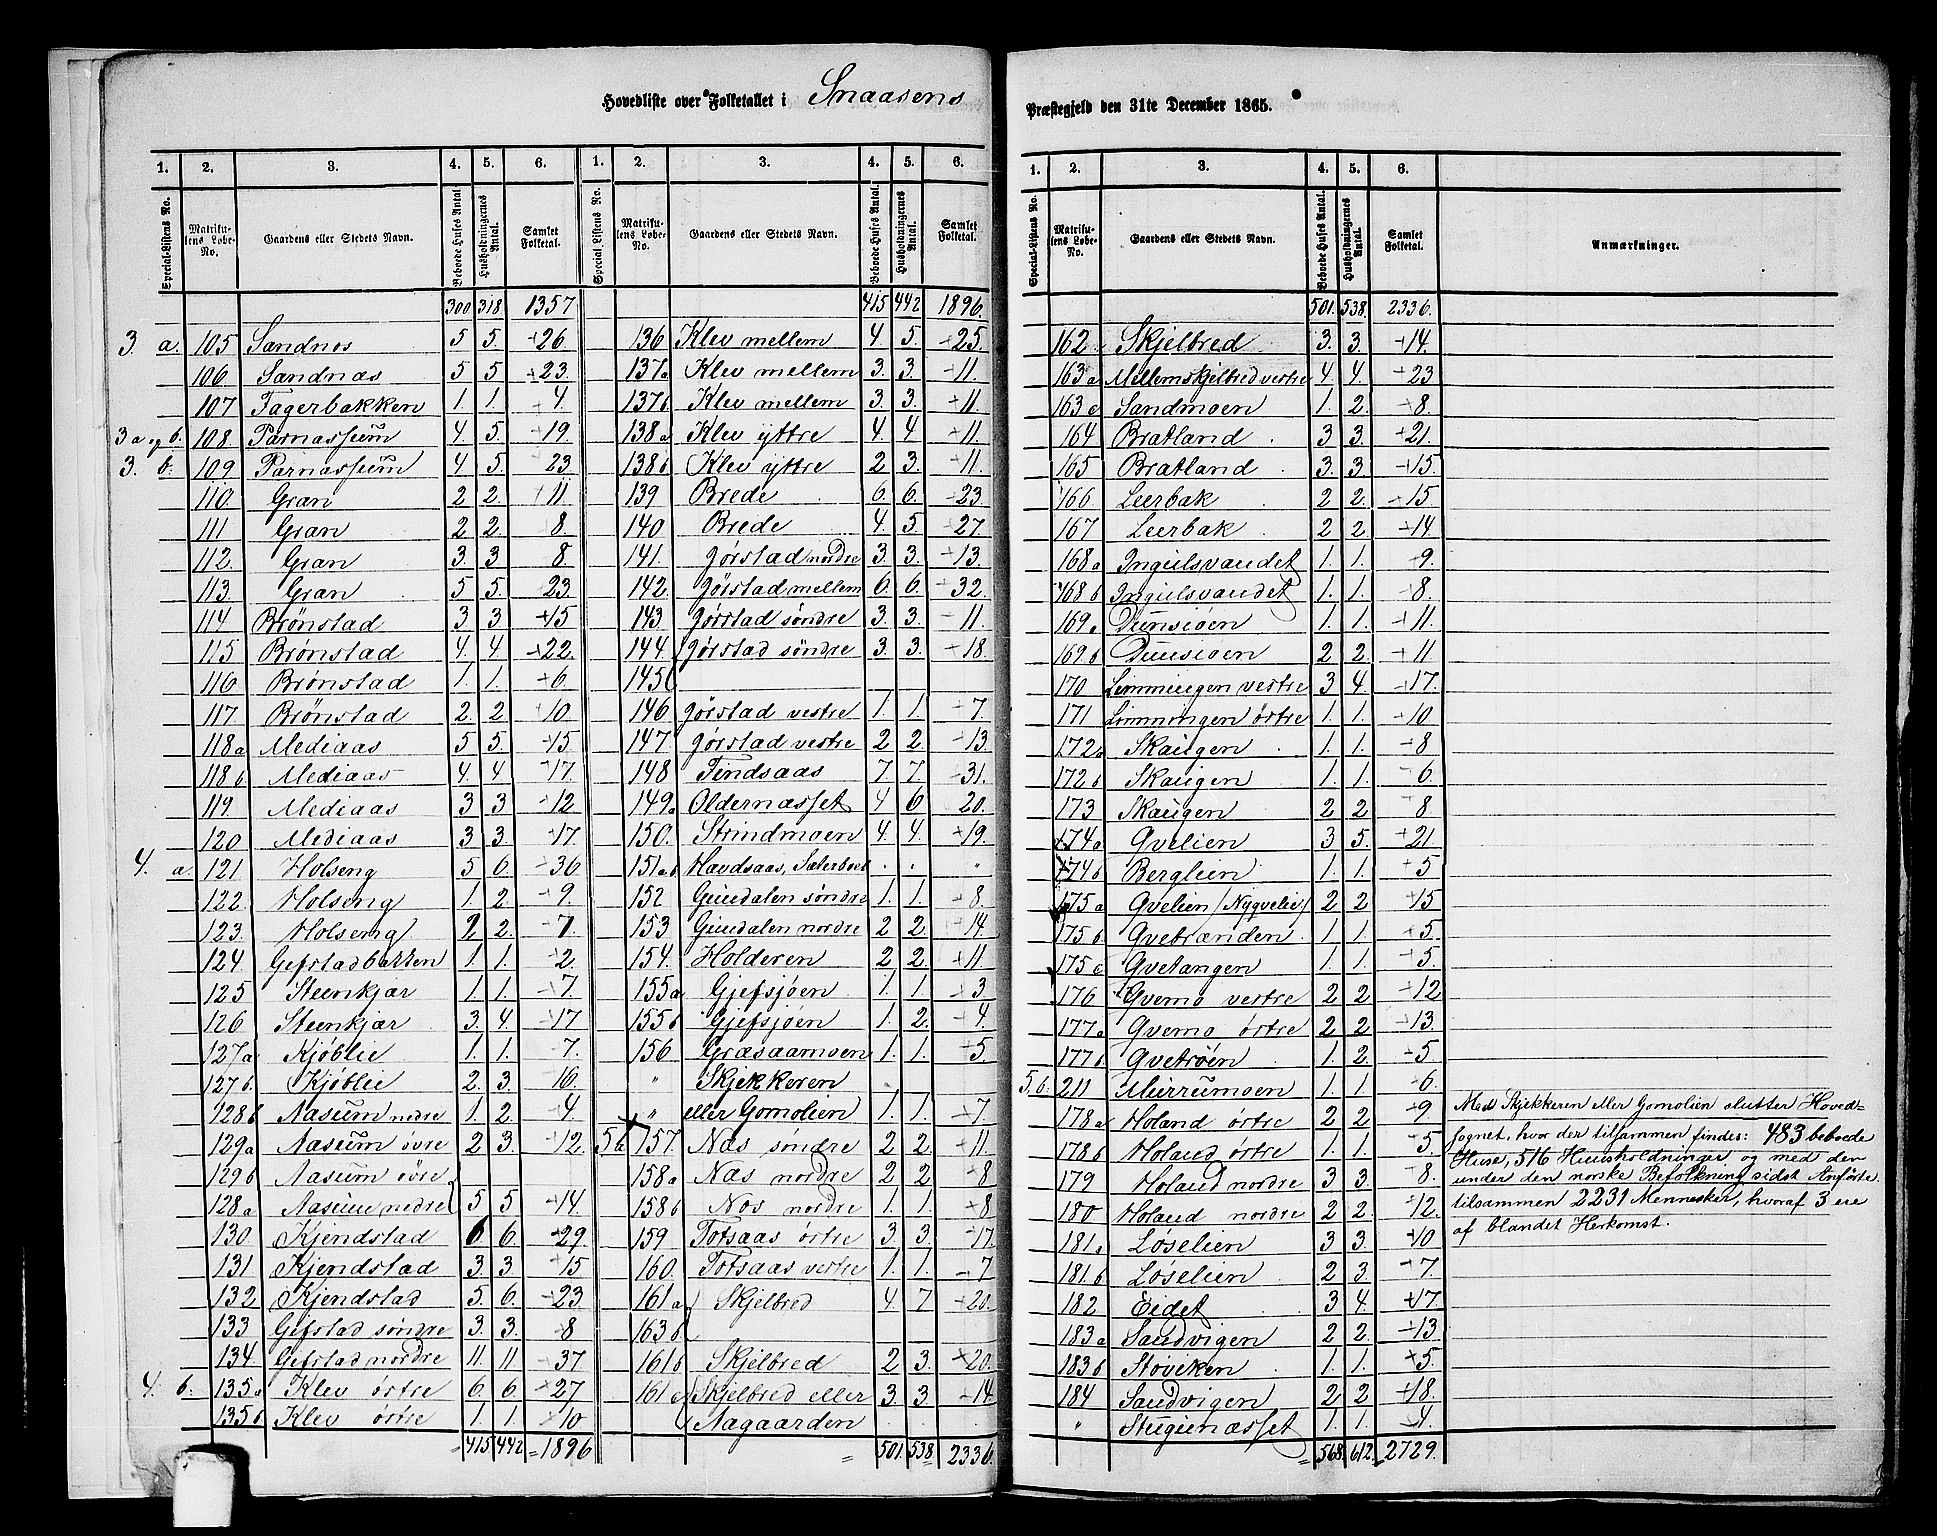 Hovedliste over Folketallet i Snaasens Præstegjeld den 31te December 1865.
1. 2. 3. 4. 5. 6. 1. 2. 3. 4. 5. 6.
Special-Listens No. Matrikulens Løbe-No. Gaardens eller Stedets Navn. Beboede Huses Antal. Husholdningernes Antal. Samlet Folketal. Special Listens No. Matrikulens Løbe-No. Gaardens eller Stedets Navn. Beboede Huses Antal. Husholdningernes Antal. Samlet Folketal.
300 318 1357
3. a. 105 Sandnes 5 5. 26
106. Sandnæs 5 5 23.
107 Fagerbakken 1. 1. 4.
3a og b. 108. Parnassum 4. 5. 19.
3. b. 109. Parnassum 4 5. 23
110. Gran 2 2. 11.
111 Gran 2 2. 8.
112. Gran 3 3 8.
113. Gran 5 5. 23.
114 Brønstad 3 3 15
115 Brønstad 4. 4. 22.
116 Brønstad 1. 1. 6
117. Brønstad 2. 2 10
118a Mediaas 5 5. 15.
118b Mediaas 4. 4 17.
119. Mediaas 3 3 12
120 Mediaas 3 3. 17.
4. a. 121 Holseng 5 6. 36
122. Holseng 1. 2. 9.
123. Holseng 2 2. 7.
124. Gefstadbakken 1. 1. 2.
125 Steenkjær 1. 1. 7.
126 Steenkjær 3. 4. 17
127a Kjøblie 1. 1. 7.
127b. Kjøblie 2. 3. 16.
128b Aasum nedre 1. 2. 4.
129a Aasum øvre 2 3. 12.
129b Aasum øvre
128a Aasum nedre 5 5 14.
130. Kjendstad 6 6. 29
131 Kjendstad 3 3. 15
132 Kjendstad 5. 6. 23.
133 Gefstad søndre 3. 3. 8
134. Gefstad nordre 11. 11 37
4. b. 135a Klev østre 6. 6. 27
135b Klev østre 1. 1. 10
415 442 = 1896
415 442 1896.
136 Klev mellem 4 5. 25.
137a Klev mellem 3. 3. 11.
137b Klev mellem 3 3. 11.
138a Klev yttre 4. 4 11.
138b Klev yttre 2 3. 11.
139 Brede 6. 6. 23.
140 Brede 4. 5 27.
141. Jørstad nordre 3 3. 13.
142. Jørstad mellem 6 6. 32.
143 Jørstad søndre 3 3. 11.
144 Jørstad søndre 3 3. 18.
145
146 Jørstad vestre 1. 1. 7.
147 Jørstad vestre 2 2. 13.
148 Findsaas 7. 7. 31.
149a Oldernæsset 4 6 20.
150. Strindmoen 4. 4. 19.
151ab Havdsaas, Sæterboel . . "
152 Guudalen søndre 1. 1. 8.
153 Guudalen nordre 2 2. 14
154. Holderen 2 2. 11
155a Gjefsjøen 1. 1 3
155b Gjefsjøen 1. 2. 4.
156 Græsaamoen 1. 1. 5.
" Skjekkeren
" eller Gomolien 1. 1. 7
5a 157. Næs søndre 2 2. 11.
158a Næs nordre 2 2 8
158b Næs nordre 1. 1. 8
159 Totsaas østre 3. 3. 17.
160. Totsaas vestre 1. 1. 7
161a Skjelbred 4. 7 20.
163b
161b Skjelbred 2 3. 20.
161c Skjelbred eller 3. 3. 14
Aagaarden
= 501. 538 2336
1. 2. 3. 4. 5. 6.
Special-Listens No. Matrikulens Løbe-No. Gaardens eller Stedets Navn. Beboede Huses Antal. Husholdningernes Antal. Samlet Folketal. Anmærkninger.
501. 538. 2336.
162 Skjelbred 3. 3. 14.
163a Mellemskjelbred vestre 4. 4. 23
163c Sandmoen 1. 2. 8.
164 Bratland 3 3. 21.
165 Bratland 3. 3. 15.
166 Leerbak 2 2. 15.
167 Leerbak 2 2. 14
168a Ingulsvandet 1. 1. 9.
168b Ingulsvandet 1. 1. 8.
169a Duusiøen 1. 1. 11.
169b Duusiøen 2 2. 11
170 Limmingen vestre 3 4. 17.
171 Limmingen østre 1. 1. 10
172a Skaugen 1. 1. 8
172b Skaugen 1. 1. 6.
173 Skaugen 2 2 8.
174a Qvelien 3 5. 21
174b Berglien 1. 1. 5
175a Qvelien (Nyqvelie) 2 2 15
175b Qvetranden 1. 1. 5.
175c Qvetangen 1. 1. 5.
176 Qvemo vestre 2 2 12
177a Qvemo østre 2 2 13.
177b Qvetrøen 1. 2. 5
5.b. 211 Murrumoen 1. 1. 6.
178a Holand østre 2 2. 9
178b Holand østre 1. 1. 5.
179 Holand nordre 3 3. 8.
180 Holand nordre 2 2. 12.
181a Løselien 3 3. 10
181b Løselien 2 3. 7.
182 Eidet 3 4. 17.
183a Sandvigen 2 2. 13
183b Støviken 1. 1. 5.
184 Sandvigen 2 2 18.
" Stugunæsset 1. 1. 4.
= 568. 612. = 2729.
Med Skjekkeren eller Gomolien slutter Hoved-
sognet, hvor der tilsammen findes: 483 beboede
Huse, 516 Huusholdninger og med den
under den norske Befolkning sidst Anførte
tilsammen 2231 Mennesker, hvoraf 3 ere
af blandet Herkomst.